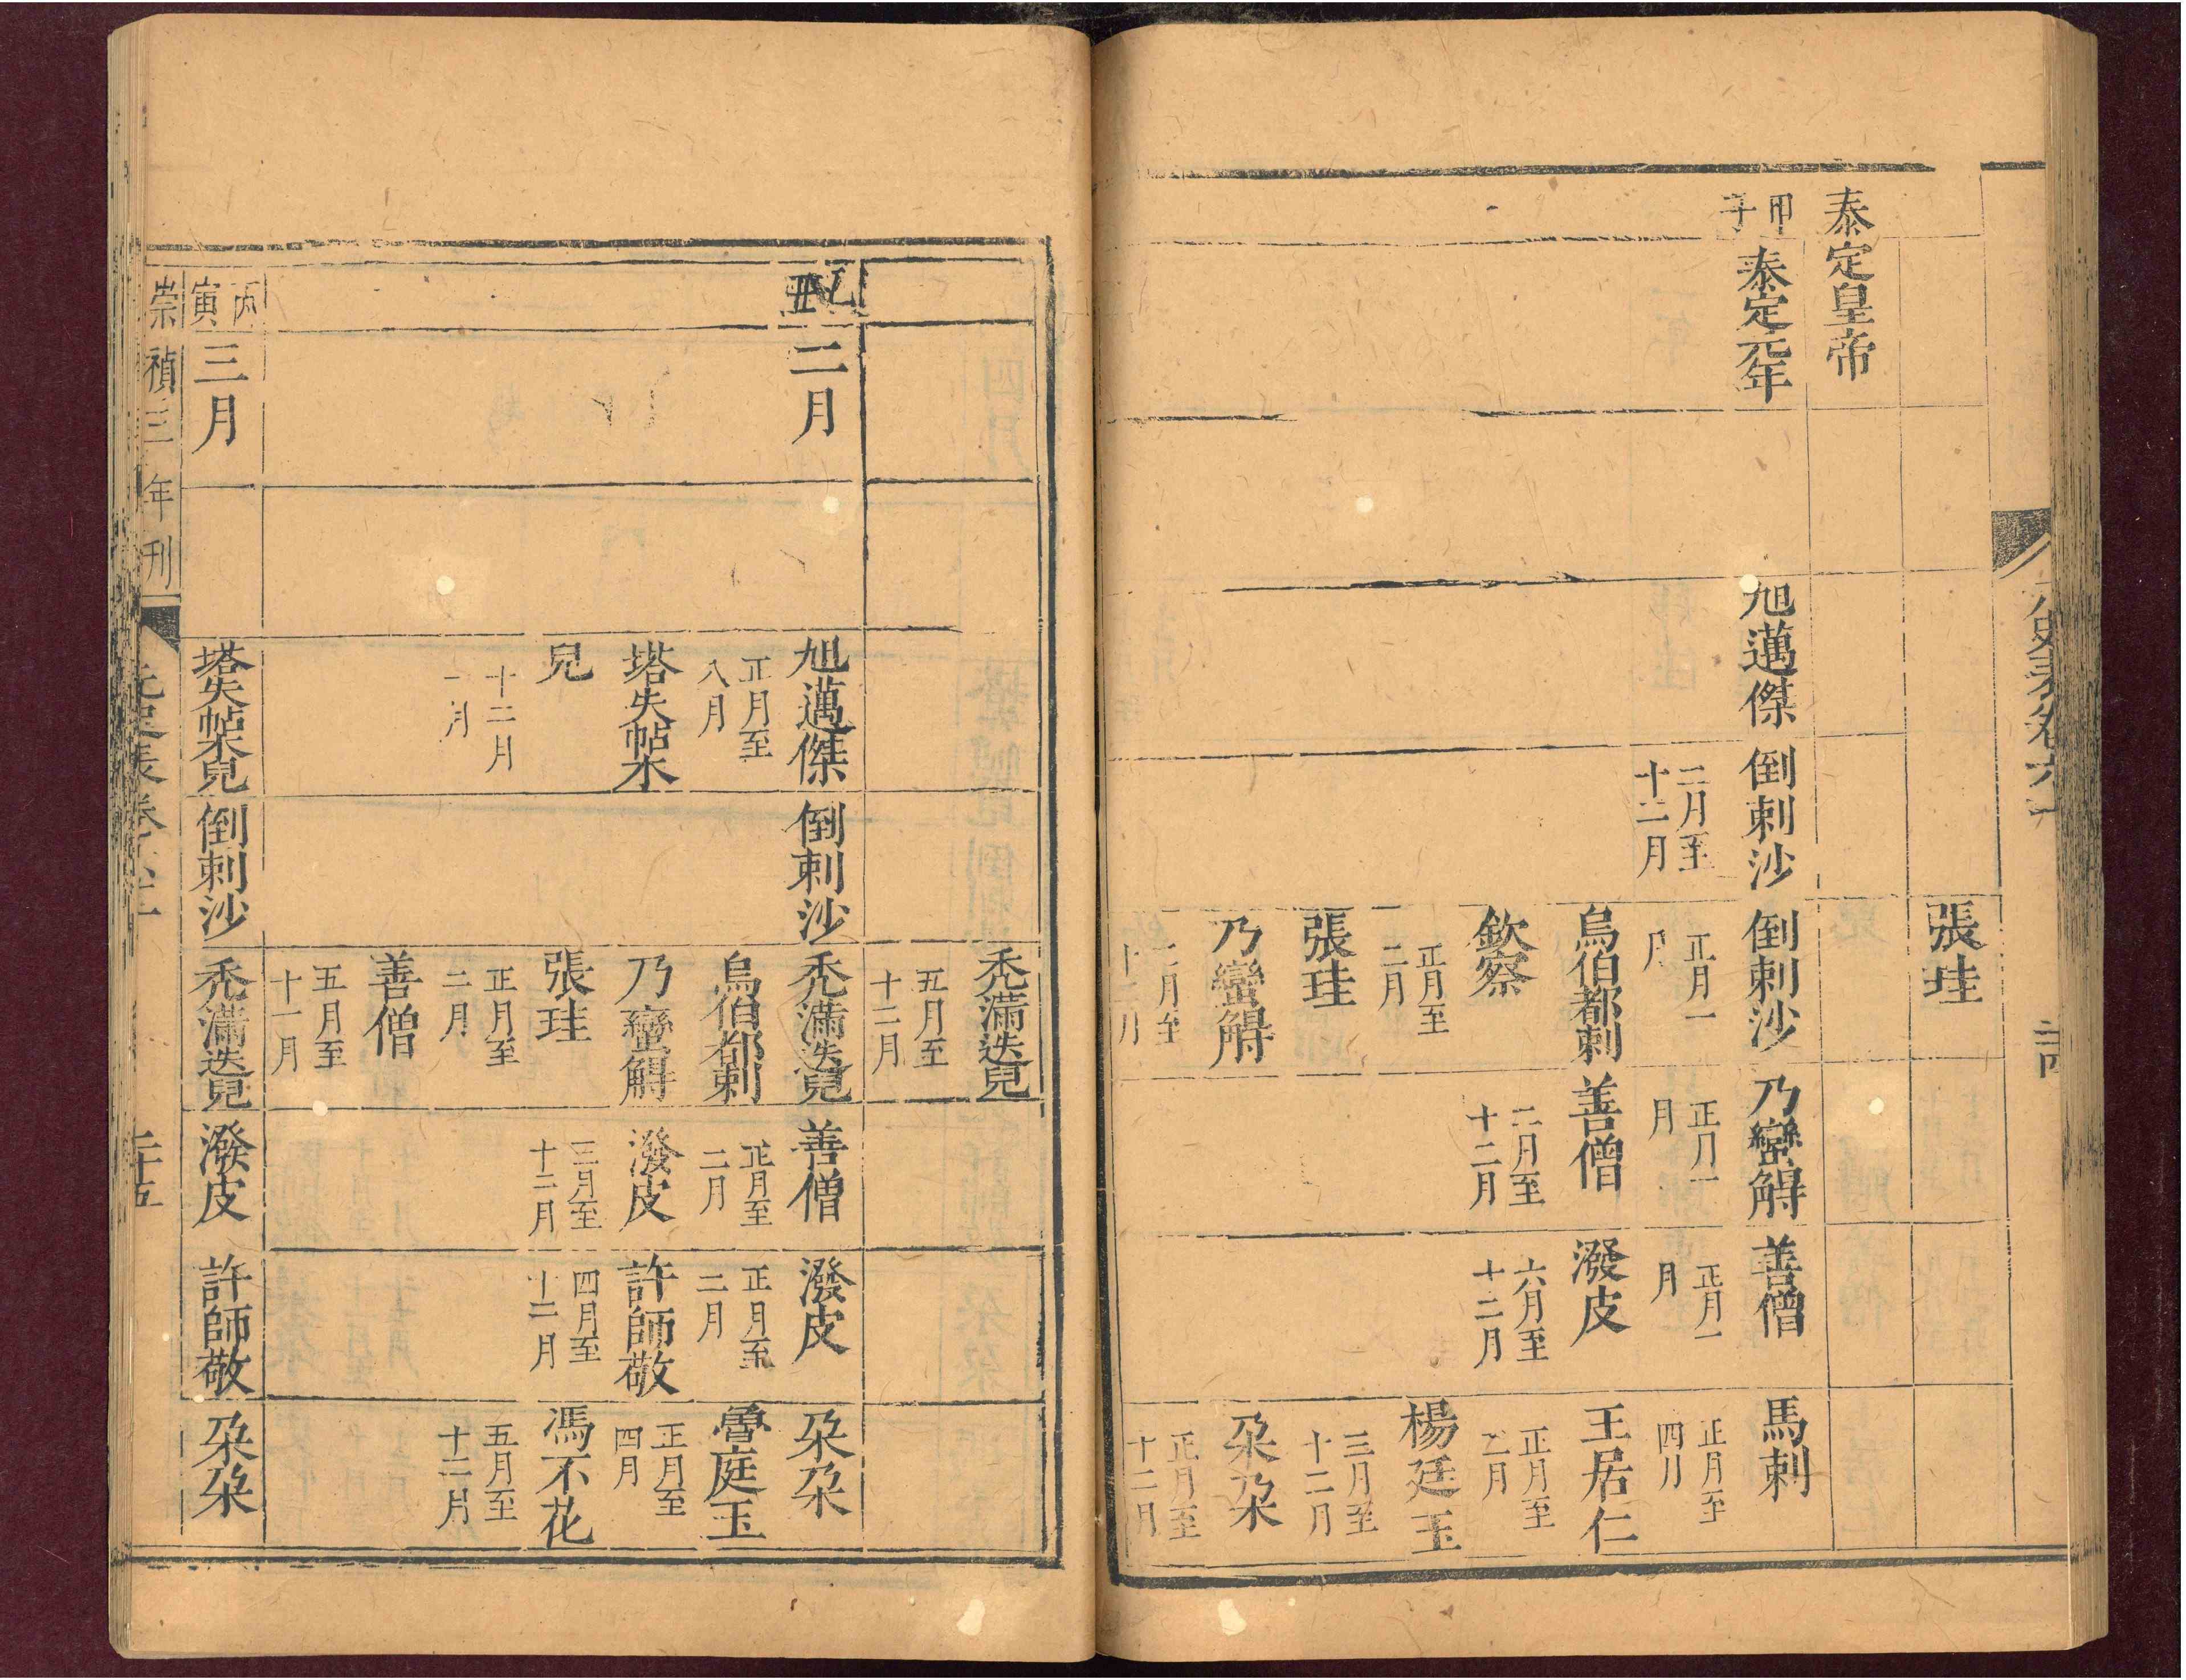 張珪
泰定皇帝
甲子
泰定元年
旭邁傑
倒剌沙
二月至
十二月
倒剌沙
正月一
月
烏伯都剌
欽察
正月至
二月
張珪
乃蠻䚟
二月至
十二月
乃蠻䚟
正月一
月
善僧
二月至
十二月
善僧
正月一
月
潑皮
六月至
十二月
馬剌
正月至
四月
王居仁
正月至
二月
楊廷玉
三月至
十二月
朶朶
正月至
十二月
禿滿迭兒
五月至
十二月
二月
旭邁傑
正月至
八月
塔失帖木
兒
十二月
一月
倒剌沙
禿滿迭兒
烏伯都剌
乃蠻䚟
張珪
正月至
二月
善僧
五月至
十一月
善僧
正月至
二月
潑皮
三月至
十二月
潑皮
正月至
二月
許師敬
四月至
十二月
朶朶
魯庭玉
正月至
四月
馮不花
五月至
十二月
丙寅
三月
塔失帖木兒
倒剌沙
禿滿迭兒
潑皮
許師敬
朶朶
崇禎三年刊